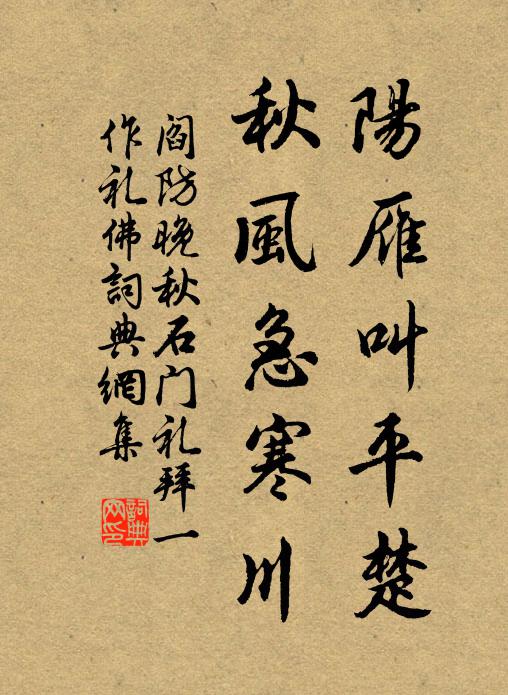 陽雁叫平楚
秋風急寒川
閻防晚秋石门礼拜一
作礼佛詞典網集
詞典
网印